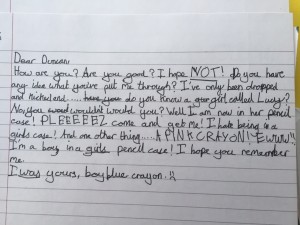 Dear Duncan
How are you? Are you good? I hope NOT! Do you have
any idea what you've put me through? I've only been dropped
and do you know a girl called Lucy?
No you wouldn't would you? Well I am now in her pencil
case! PLEEEEEZ come and get me! I hate being in a
girls case! And one other thing..... A PINK CRAYON! EWWW!
I'm a boy in a girls pencil case! I hope you remember
me.
I was yours, boy blue crayon.